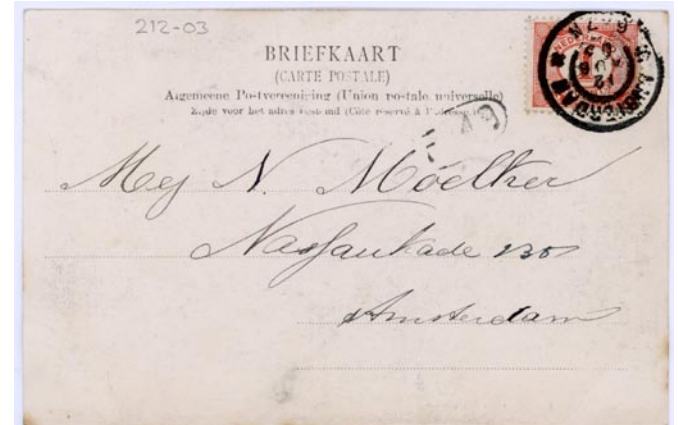 212-03
BRIEFKAART
(CARTE POSTALE)
Algemeene Postvereeniging (Union postale universelle)
Zijde voor het adres bestemd (Côté réservé à l'adresse)
NEDERLAND
AMSTERDAM
Mej N. Moelker
Nassaukade 235
Amsterdam